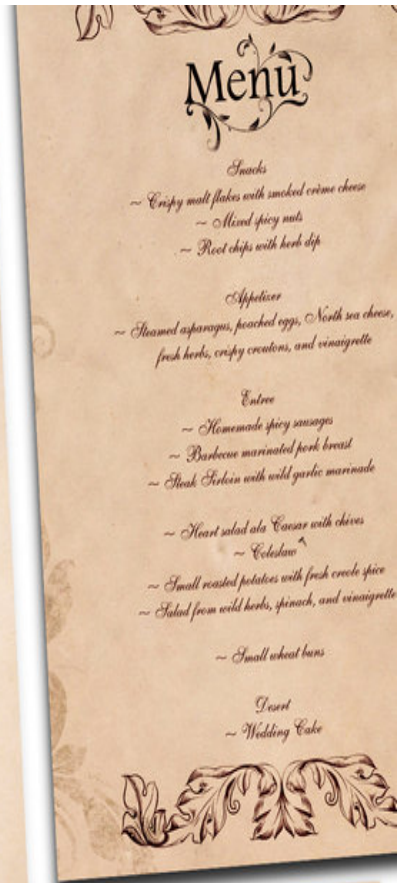 Menu
Snacks
~ Crispy malt flakes with smoked crème cheese
~ Mixed spicy nuts
~ Root chips with herb dip
Appetizer
~ Steamed asparagus, poached eggs, North sea cheese,
fresh herbs, crispy croutons, and vinaigrette
Entree
~ Homemade spicy sausages
~ Barbecue marinated pork breast
~ Steak Sirloin with wild garlic marinade
~ Heart salad ala Caesar with chives
~ Coleslaw
~ Small roasted potatoes with fresh creole spice
~ Salad from wild herbs, spinach, and vinaigrette
~ Small wheat buns
Desert
~ Wedding Cake